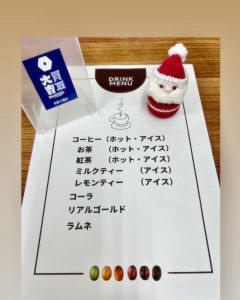 買取
大吉
DRINK
MENU
コーヒー（ホット・アイス）
お茶　（ホット・アイス）
紅茶　（ホット・アイス）
ミルクティー　（アイス）
レモンティー　（アイス）
コーラ
リアルゴールド
ラムネ